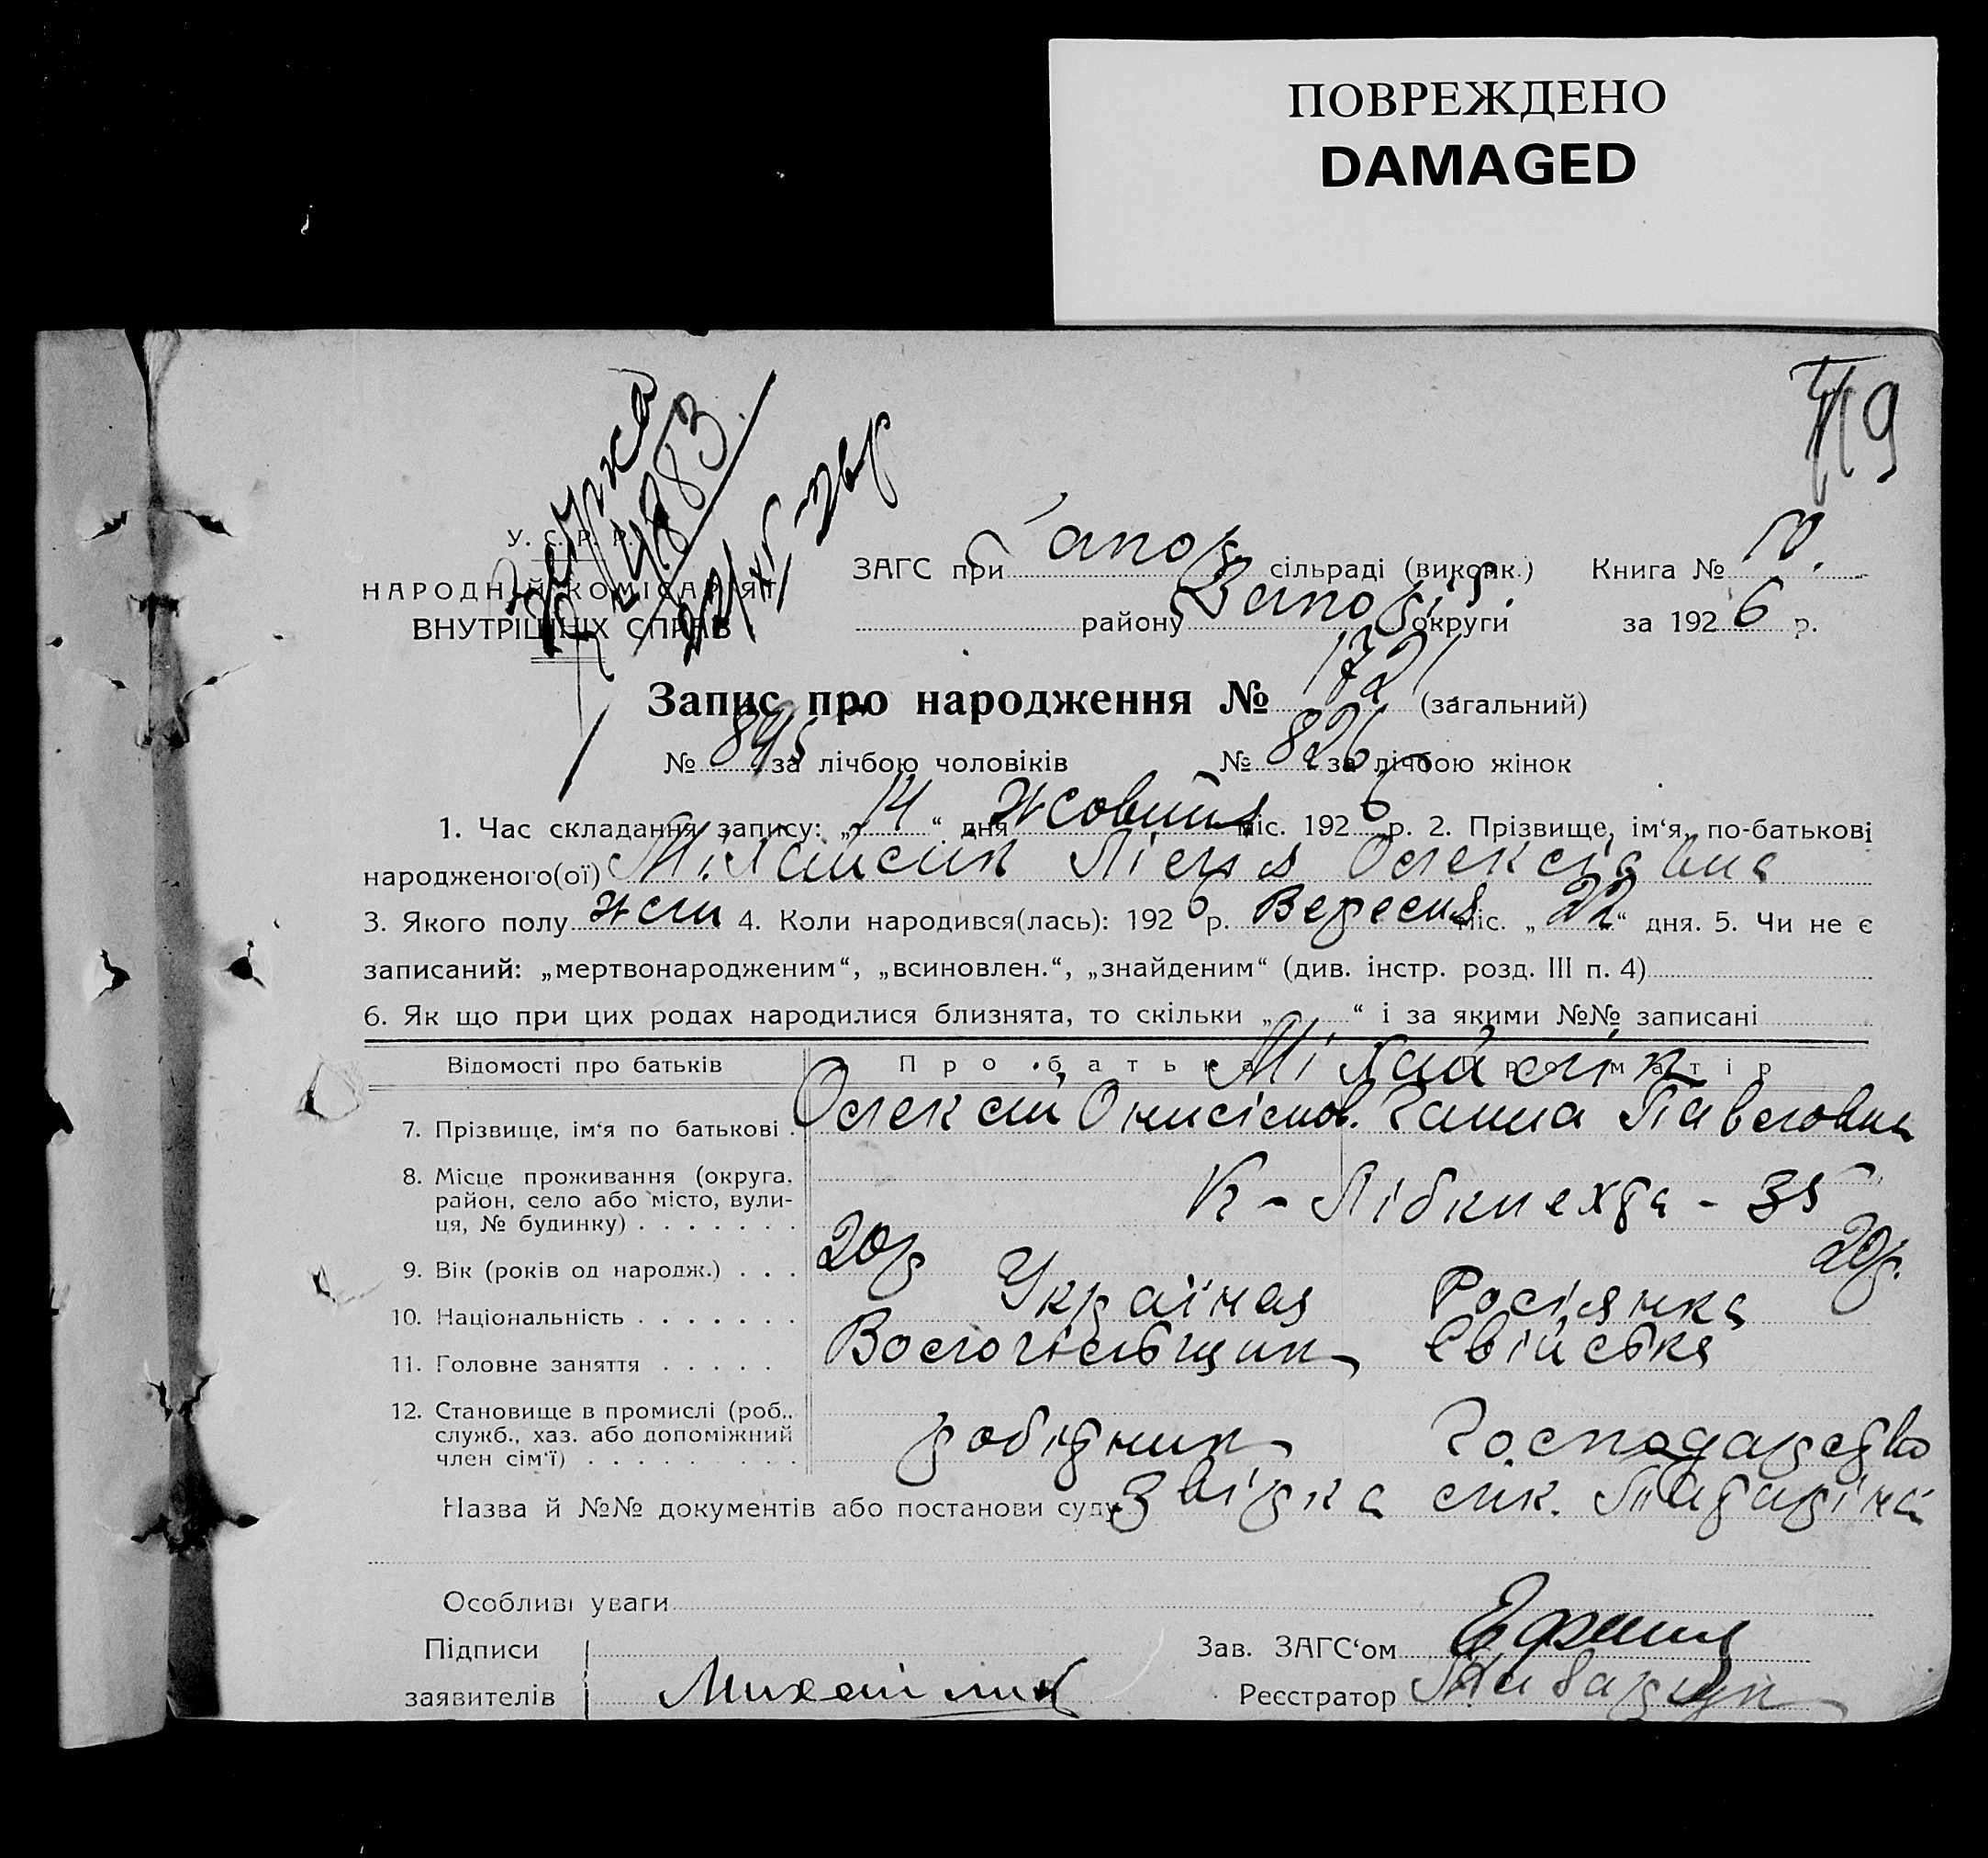 ПОВРЕЖДЕНО
DAMAGED
119
У. С. Р. Р.
НАРОДНИЙ КОМІСАРІЯТ
ВНУТРІШНІХ СПРАВ
ЗАГС при Запоріз сільраді (виконк.) Книга № 10.
району Запоріз. округи за 1926 р.
Запис про народження № 1721 (загальний)
№ 895 за лічбою чоловіків № 826 за лічбою жінок
1. Час складання запису: „14“ дня Жовтня міс. 1926 р. 2. Прізвище, ім‘я, по-батькові
народженого(ої) Міхайлик Лідія Олексіївна
3. Якого полу жін 4. Коли народився(лась): 1926 р. Вересня міс. „22“ дня. 5. Чи не є
записаний: „мертвонародженим“, „всиновлен.“, „знайденим“ (див. інстр. розд. III п. 4)
6. Як що при цих родах народилися близнята, то скільки „ “ і за якими №№ записані
Відомості про батьків Про батька Про матір
Міхайлик
7. Прізвище, ім‘я по батькові . Олексій Онисімов. Ганна Павловна
8. Місце проживання (округа, район, село або місто, вули-
ця, № будинку) . . . . . . . К-Лібкнехта - 35
9. Вік (років од народж.) . . . 20р 20р.
10. Національність . . . . . . . Українец Росіянка
11. Головне заняття . . . . . Свійське
12. Становище в промислі (роб.,
служб., хаз. або допоміжний
член сім‘ї) . . . . . . . . . робітник господарство
Назва й №№ документів або постанови суду Звірка
Особливі уваги
Підписи Зав. ЗАГС‘ом
заявителів Михайлик Реєстратор